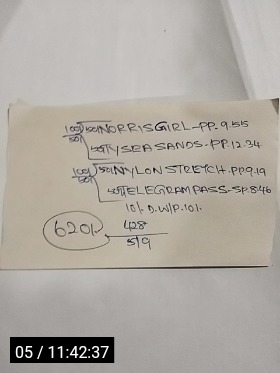 100/50 50/1 NORRISGIRL-PP.9.55
50/1 TYSEA SANDS-PP.12.34
100/50 50/1 NYLON STRETCH.PP.9.19
50/1 TELEGRAM PASS-SP.8.46
10/. D.W/P.10/.
6201. 428
519
05 / 11:42:37